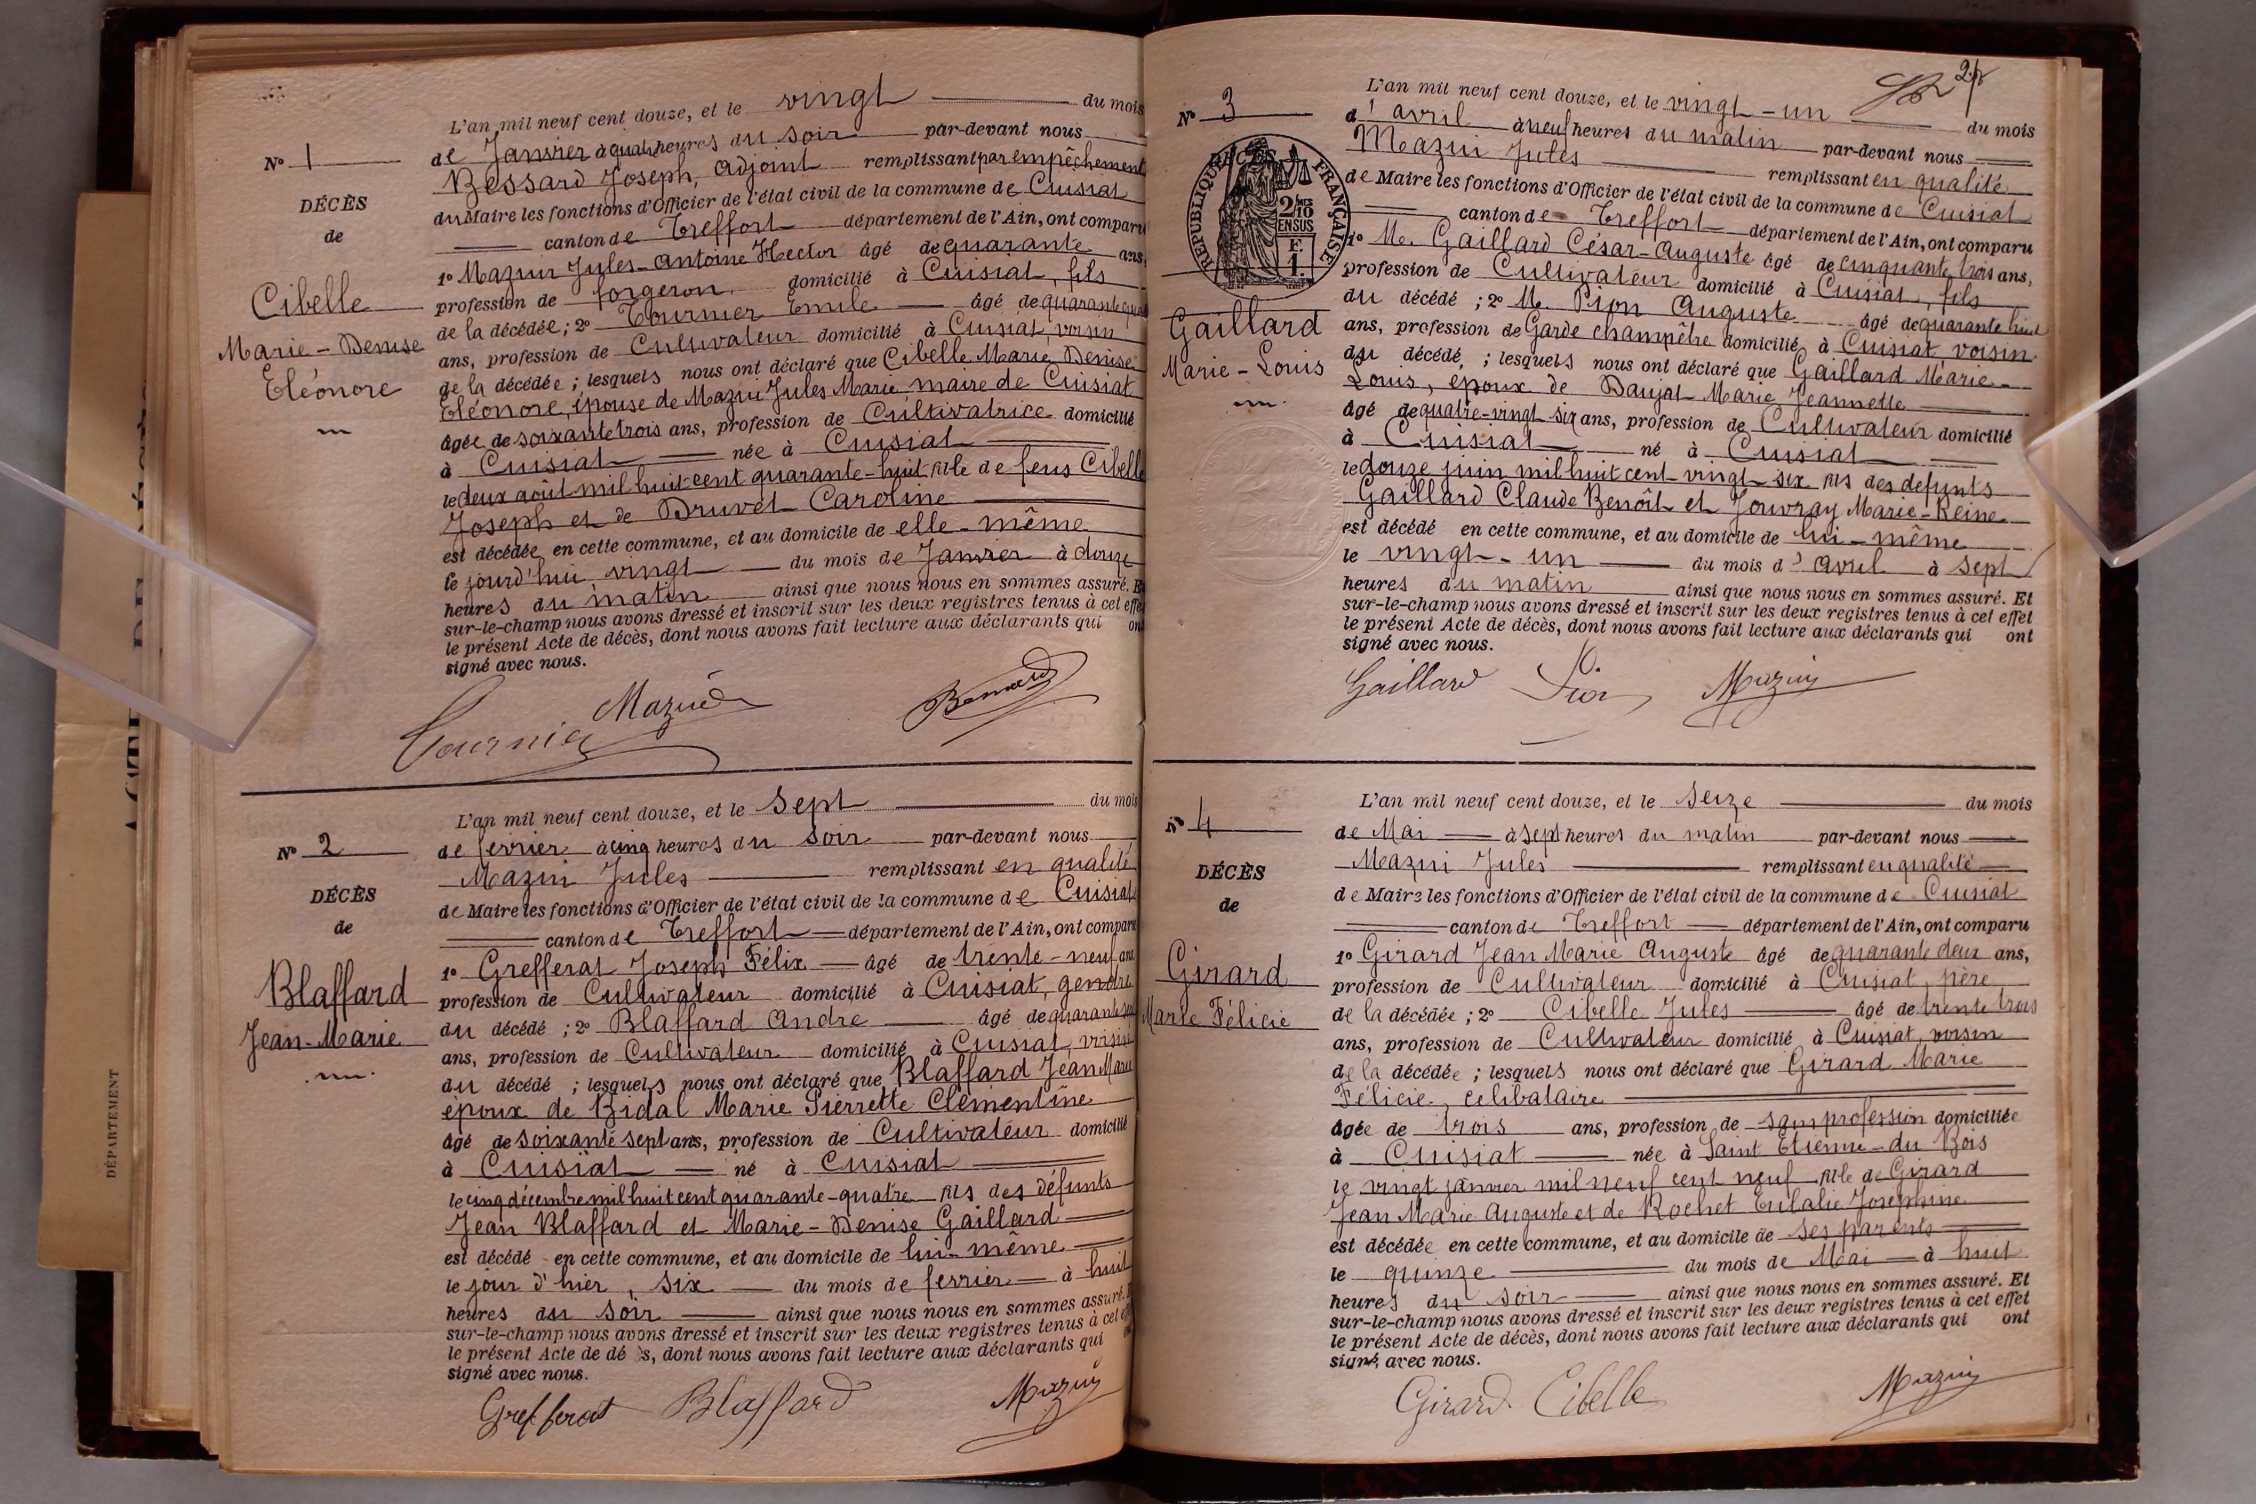 L'an mil neuf cent douze, et le vingt du mois
N° 1
de Janvier à quatre heures du soir par-devant nous
Bessard Joseph, adjoint remplissant par empêchement
DÉCÈS
du Maire les fonctions d'Officier de l'état civil de la commune de Cuisiat
de
canton de Treffort département de l'Ain, ont comparu
1° Mazuir Jules-Antoine Hector âgé de quarante ans,
Cibelle
profession de forgeron domicilié à Cuisiat, fils
de la décédée ; 2° Tournier Emile âgé de quarante
Marie-Denise
ans, profession de Cultivateur domicilié à Cuisiat, voisin
Eléonore
de la décédée ; lesquels nous ont déclaré que Cibelle Marie Denise
Eléonore, épouse de Mazui Jules Marie, maire de Cuisiat
âgée de soixante trois ans, profession de Cultivatrice domicilié
à Cuisiat née à Cuisiat
le deux août mil huit cent quarante-huit fille de feus Cibelle
Joseph et de Druvet Caroline
est décédée en cette commune, et au domicile de elle-même
le jourd'hui vingt du mois de Janvier à douze
heures du matin ainsi que nous nous en sommes assuré. Et
sur-le-champ nous avons dressé et inscrit sur les deux registres tenus à cet effet
le présent Acte de décès, dont nous avons fait lecture aux déclarants qui ont
signé avec nous.
Tournier Mazui
L'an mil neuf cent douze, et le sept du mois
N° 2
de fevrier à cinq heures du soir par-devant nous
Mazui Jules remplissant en qualité
DÉCÈS
de Maire les fonctions d'Officier de l'état civil de la commune de Cuisiat
de
canton de Treffort département de l'Ain, ont comparu
1° Grefferat Joseph Félix âgé de trente-neuf ans
Blaffard
profession de Cultivateur domicilié à Cuisiat, gendre
du décédé ; 2° Blaffard André âgé de quarante
Jean-Marie
ans, profession de Cultivateur domicilié à Cuisiat, voisin
du décédé ; lesquels nous ont déclaré que Blaffard Jean Marie
époux de Bidal Marie Pierrette Clémentine
âgé de soixante sept ans, profession de Cultivateur domicilié
à Cuisiat né à Cuisiat
le cinq décembre mil huit cent quarante-quatre fils des défunts
Jean Blaffard et Marie-Denise Gaillard
est décédé en cette commune, et au domicile de lui-même
le jour d'hier, six du mois de fevrier à huit
heures du soir ainsi que nous nous en sommes assuré.
sur-le-champ nous avons dressé et inscrit sur les deux registres tenus à cet
le présent Acte de dé s, dont nous avons fait lecture aux déclarants qui
signé avec nous.
Grefferat Blaffard Mazuy
2
L'an mil neuf cent douze, et le vingt-un du mois
N° 3
d'avril à neuf heures du matin par-devant nous
Mazui Jules remplissant en qualité
DÉCÈS
RÉPUBLIQUE FRANÇAISE
2/10 EN SUS
F. 1.
de Maire les fonctions d'Officier de l'état civil de la commune de Cuisiat
canton de Treffort département de l'Ain, ont comparu
1° M. Gaillard César-Auguste âgé de cinquante trois ans,
profession de Cultivateur domicilié à Cuisiat, fils
du décédé ; 2° M. Pion Auguste âgé de quarante huit
Gaillard
ans, profession de Garde champêtre domicilié à Cuisiat, voisin
Marie-Louis
du décédé ; lesquels nous ont déclaré que Gaillard Marie-
Louis, époux de Daujat Marie Jeannette
âgé de quatre-vingt six ans, profession de Cultivateur domicilié
à Cuisiat né à Cuisiat
le douze juin mil huit cent vingt-six fils des défunts
Gaillard Claude Benoît et Jouvray Marie-Reine
est décédé en cette commune, et au domicile de lui-même
le vingt-un du mois d'avril à sept
heures du matin ainsi que nous nous en sommes assuré. Et
sur-le-champ nous avons dressé et inscrit sur les deux registres tenus à cet effet
le présent Acte de décès, dont nous avons fait lecture aux déclarants qui ont
signé avec nous.
Gaillard Pion Mazuy
L'an mil neuf cent douze, et le seize du mois
N° 4
de Mai à sept heures du matin par-devant nous
Mazui Jules remplissant en qualité
DÉCÈS
de Maire les fonctions d'Officier de l'état civil de la commune de Cuisiat
de
canton de Treffort département de l'Ain, ont comparu
1° Girard Jean Marie Auguste âgé de quarante deux ans,
Girard
profession de Cultivateur domicilié à Cuisiat, père
Marie Félicie
de la décédée ; 2° Cibelle Jules âgé de trente trois
ans, profession de Cultivateur domicilié à Cuisiat, voisin
de la décédée ; lesquels nous ont déclaré que Girard Marie
Félicie, celibataire
âgée de trois ans, profession de sans profession domiciliée
à Cuisiat née à Saint Etienne-du Bois
le vingt janvier mil neuf cent neuf fille de Girard
Jean Marie Auguste et de Rochet Eulalie Josephine
est décédée en cette commune, et au domicile de ses parents
le quinze du mois de Mai à huit
heures du soir ainsi que nous nous en sommes assuré. Et
sur-le-champ nous avons dressé et inscrit sur les deux registres tenus à cet effet
le présent Acte de décès, dont nous avons fait lecture aux déclarants qui ont
signé avec nous.
Girard Cibelle Mazuy
DÉPARTEMENT